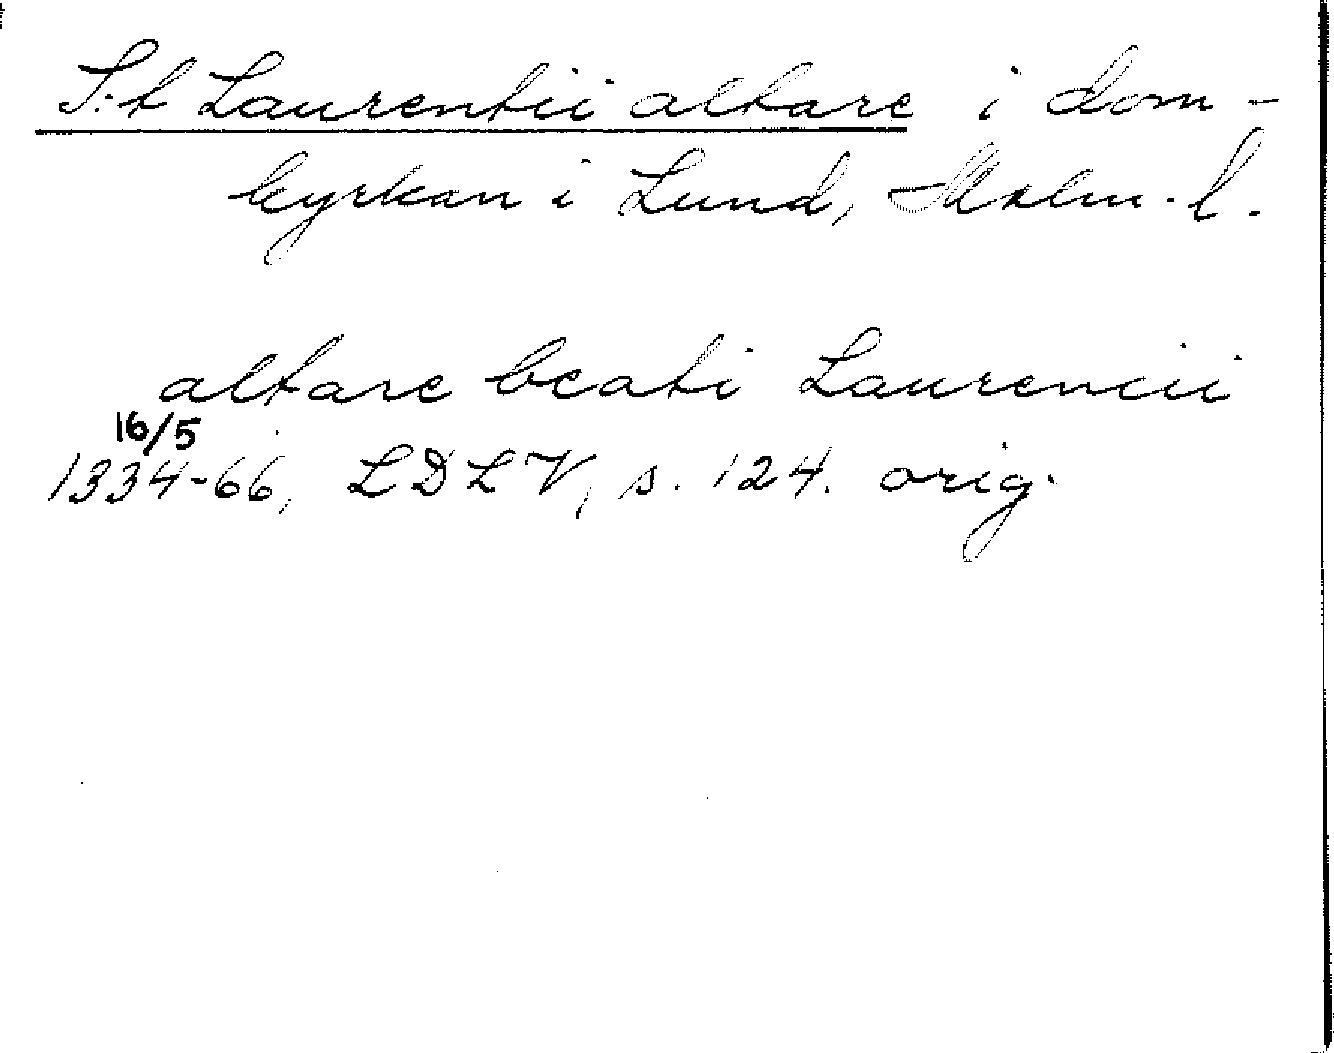 S:t Laurentii altare i dom-
kyrkan i Lund, Malm. l.
altare beati Laurencii
16/5
1334-66, LDLV, s. 124. orig.